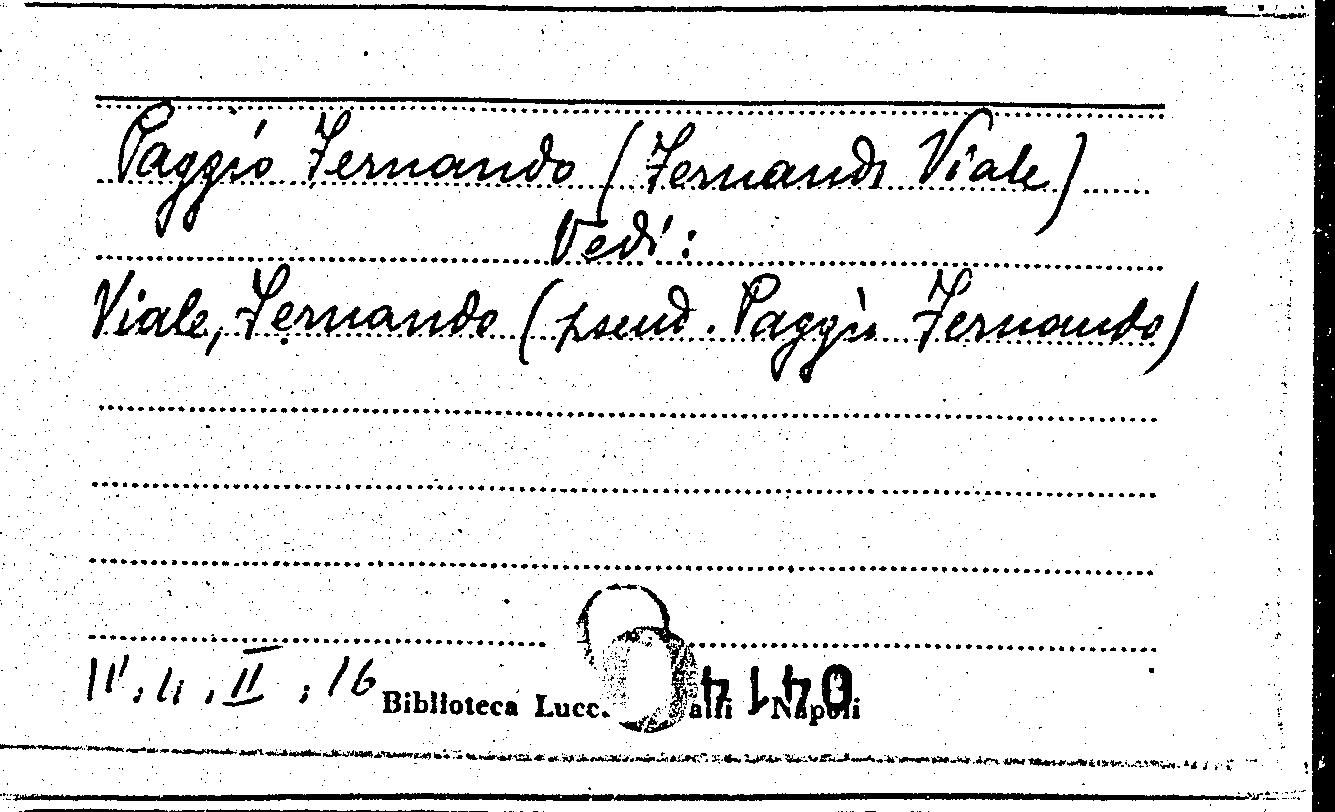 Paggio Fernando (Fernando Viale)
Vedi:
Viale, Fernando (pseud. Paggio Fernando)
Biblioteca Lucc. alli Napoli